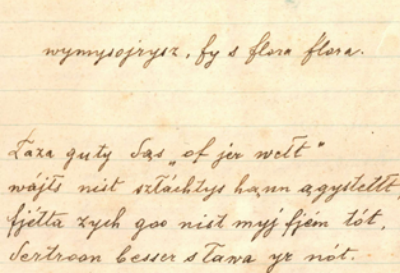 wymysojrysz, fy s flora flora.
Łaza guty dąs „ef jer wełt"
wájłs nist szłáchtys hąnn ągystełłt,
fjétta zych goo nist myj fjém tót,
dertroon besser s Ława yr nót.